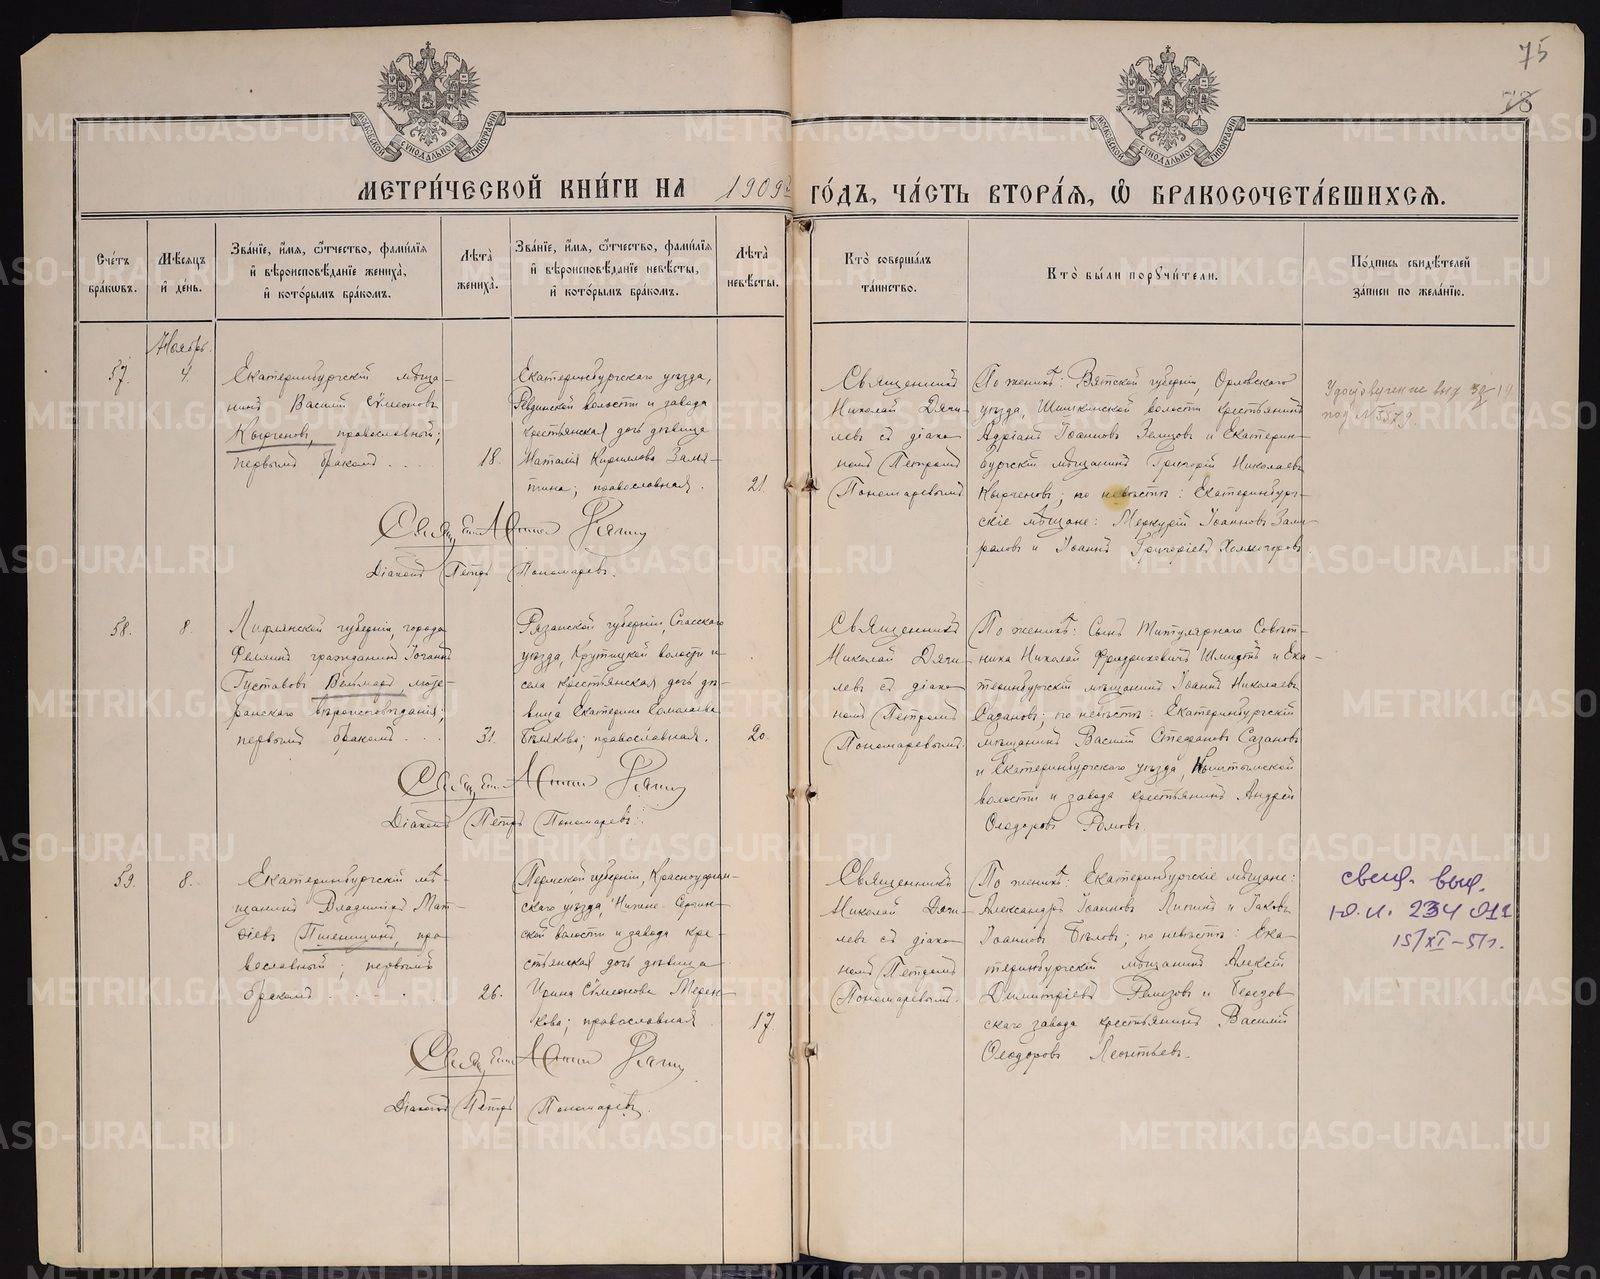 75
78
МОСКОВСКОЙ СѴНОДАЛЬНОЙ ТИПОГРАФІИ
МОСКОВСКОЙ СѴНОДАЛЬНОЙ ТИПОГРАФІИ
МЕТРИ́ЧЕСКОЙ КНИ́ГИ НА 1909 ГО́ДЪ, ЧА́СТЬ ВТОРА́Я, Ѡ БРАКОСОЧЕТА́ВШИХСЯ.
Сче́тъ бра́кѡвъ.
Мѣ́сяцъ и҆ де́нь.
Зва́нїе, и҆́мя, ѻ҆́тчество, фами́лїя и҆ вѣроисповѣ́данїе жениха̀, и҆ кото́рымъ бра́комъ.
Лѣта̀ жениха̀.
Зва́нїе, и҆́мя, ѻ҆́тчество, фами́лїя и҆ вѣроисповѣ́данїе невѣ́сты, и҆ кото́рымъ бра́комъ.
Лѣта̀ невѣ́сты.
Кто̀ соверша́лъ та́инство.
Кто̀ бы́ли порꙋчи́тели.
По́дпись свидѣ́телей за́писи по жела́нїю.
Ноябрь
57.
4.
Екатеринбургскій мѣща-
нинъ Василій Сѵмеоновъ
Кырченовъ, православный;
первымъ бракомъ . . .
18.
Екатеринбургскаго уѣзда,
Ревдинской волости и завода
крестьянская дочь дѣвица
Наталія Кириллова Замя-
тина; православная.
21.
Священникъ
Николай Дяги-
левъ съ діако-
номъ Петромъ
Пономаревымъ
По женихѣ: Вятской губерніи, Орловскаго
уѣзда, Шишкинской волости крестьянинъ
Адріанъ Іоанновъ Зенцовъ и Екатерин-
бургскій мѣщанинъ Григорій Николаевъ
Кырченовъ; по невѣстѣ: Екатеринбург-
скіе мѣщане: Меркурій Іоанновъ
и Іоаннъ Григоріевъ Холмогоровъ.
Діаконъ Петръ Пономаревъ.
58.
8.
Лифлянской губерніи, города
Феллинъ гражданинъ Іоганнъ
Густавовъ Вельмаръ люте-
ранскаго вѣроисповѣданія;
первымъ бракомъ . . .
31.
Рязанской губерніи, Спасскаго
уѣзда, Крутицкой волости и
села крестьянская дочь дѣ-
вица Екатерина
Бѣлякова; православная.
20.
Священникъ
Николай Дяги-
левъ съ діако-
номъ Петромъ
Пономаревымъ.
По женихѣ: Сынъ Титулярнаго Совѣт-
ника Николай Фридриховичъ Шмидтъ и Ека-
теринбургскій мѣщанинъ Іоаннъ Николаевъ
Сазановъ; по невѣстѣ: Екатеринбургскій
мѣщанинъ Василій Стефановъ Сазановъ
и Екатеринбургскаго уѣзда, Кыштымской
волости и завода крестьянинъ Андрей
Ѳеодоровъ
Діаконъ Петръ Пономаревъ.
59.
8.
Екатеринбургскій мѣ-
щанинъ Владиміръ Мат-
ѳіевъ Пшеницынъ, пра-
вославный; первымъ
бракомъ . . . .
26.
Пермской губерніи, Красноуфим-
скаго уѣзда, Нижне-Сергин-
ской волости и завода кре-
стьянская дочь дѣвица
Ирина Сѵмеонова Мерен-
кова; православная
17.
Священникъ
Николай Дяги-
левъ съ діако-
номъ Петромъ
Пономаревымъ.
По женихѣ: Екатеринбургскіе мѣщане:
Александръ Іоанновъ Липинъ и Іаковъ
Іоанновъ Бѣловъ; по невѣстѣ: Ека-
теринбургскій мѣщанинъ Алексій
Димитріевъ Ремезовъ и Березов-
скаго завода крестьянинъ Василій
Ѳеодоровъ Леонтьевъ.
свид. выд.
Ю.И. 234 012
15/XI-51г.
Діаконъ Петръ Пономаревъ.
METRIKI.GASO-URAL.RU